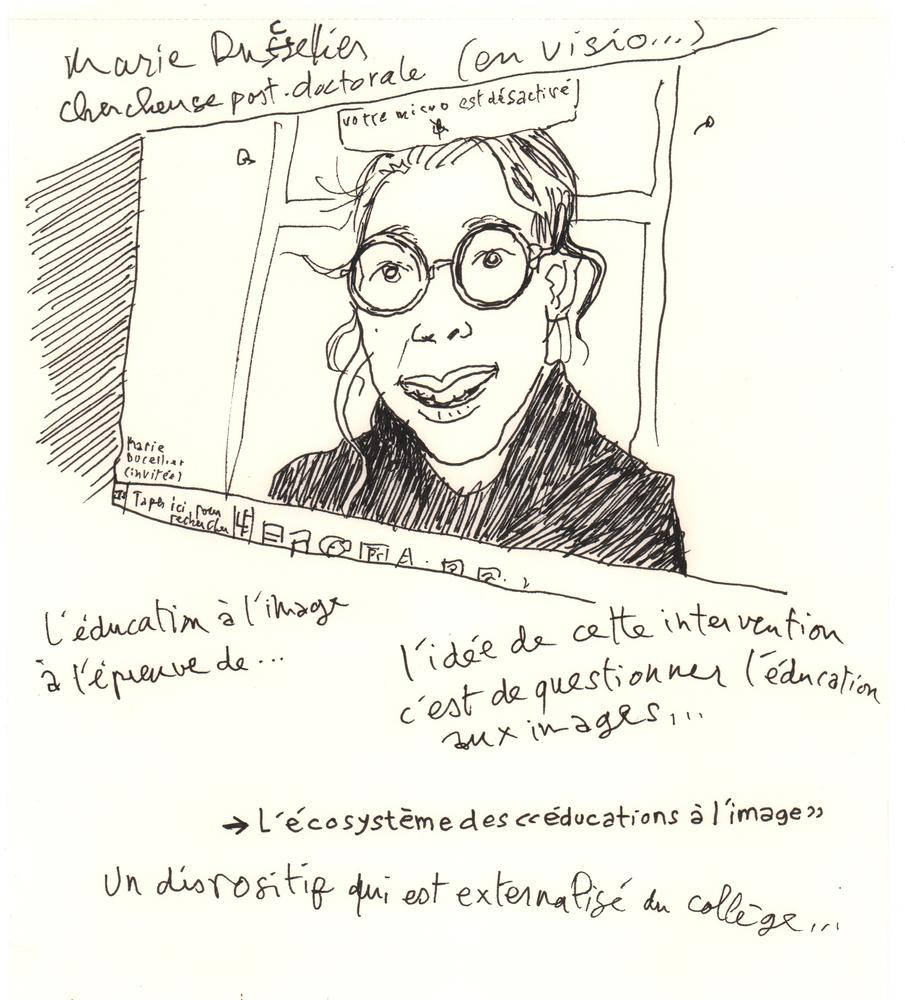 Marie Ducellier
chercheuse post-doctorale (en visio...)
votre micro est désactivé
Marie
Ducellier
(invitée)
Taper ici pour
rechercher
L'éducation à l'image
à l'épreuve de...
l'idée de cette intervention
c'est de questionner l'éducation
aux images...
→ L'écosystème des «éducations à l'image»
Un dispositif qui est externalisé du collège...